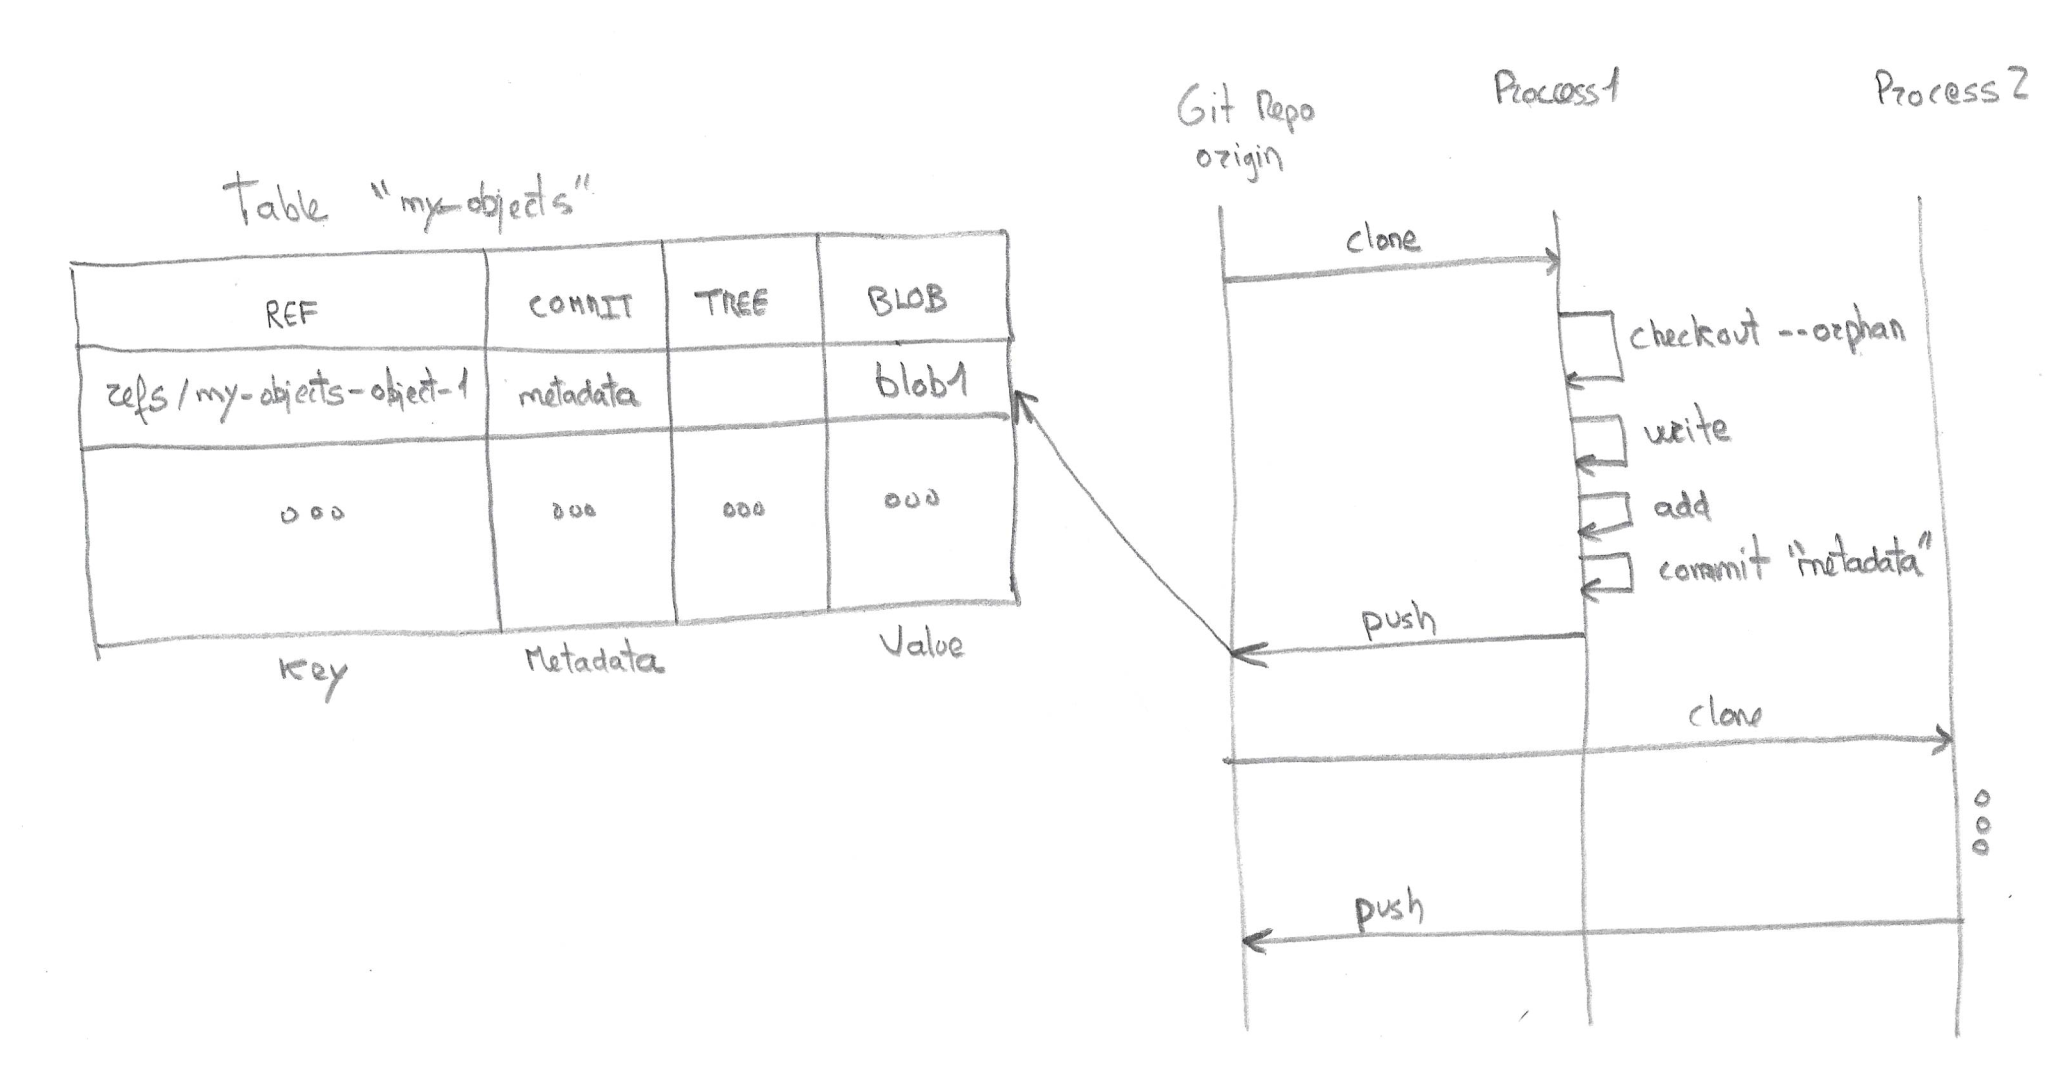 Table "my-objects"
REF COMMIT TREE BLOB
refs/my-objects-object-1 metadata blob1
ooo ooo ooo ooo
Key Metadata Value
Git Repo
origin
Proccess1
Process2
clone
checkout --orphan
write
add
commit "metadata"
push
clone
push